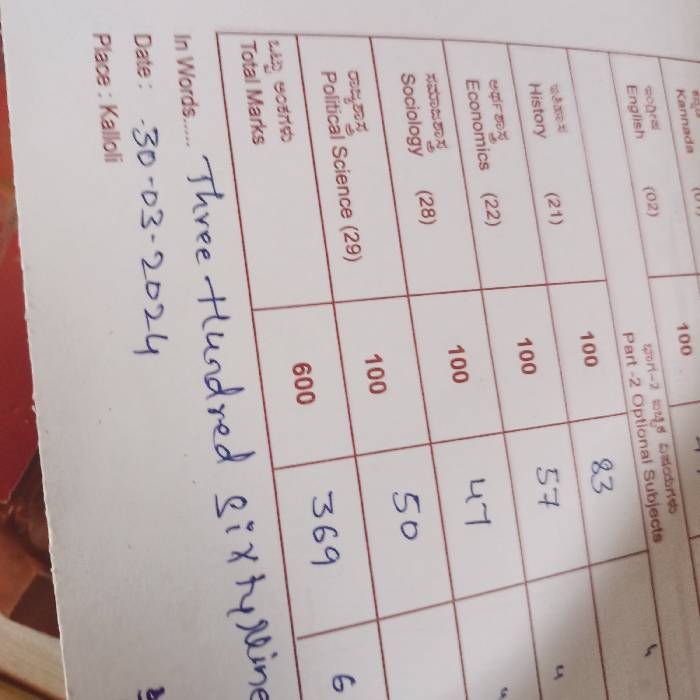 Kannada
100
ಇಂಗ್ಲೀಷ
English (02)
ಭಾಗ-2 ಐಚ್ಛಿಕ ವಿಷಯಗಳು
Part -2 Optional Subjects
ಇತಿಹಾಸ
History (21) 100 83
ಅರ್ಥಶಾಸ್ತ್ರ
Economics (22) 100 57
ಸಮಾಜಶಾಸ್ತ್ರ
Sociology (28) 100 47
ರಾಜ್ಯಶಾಸ್ತ್ರ
Political Science (29) 100 50
ಒಟ್ಟು ಅಂಕಗಳು
Total Marks 600 369 6
In Words..... Three Hundred Sixty Nine
Date : 30-03-2024
Place : Kalloli